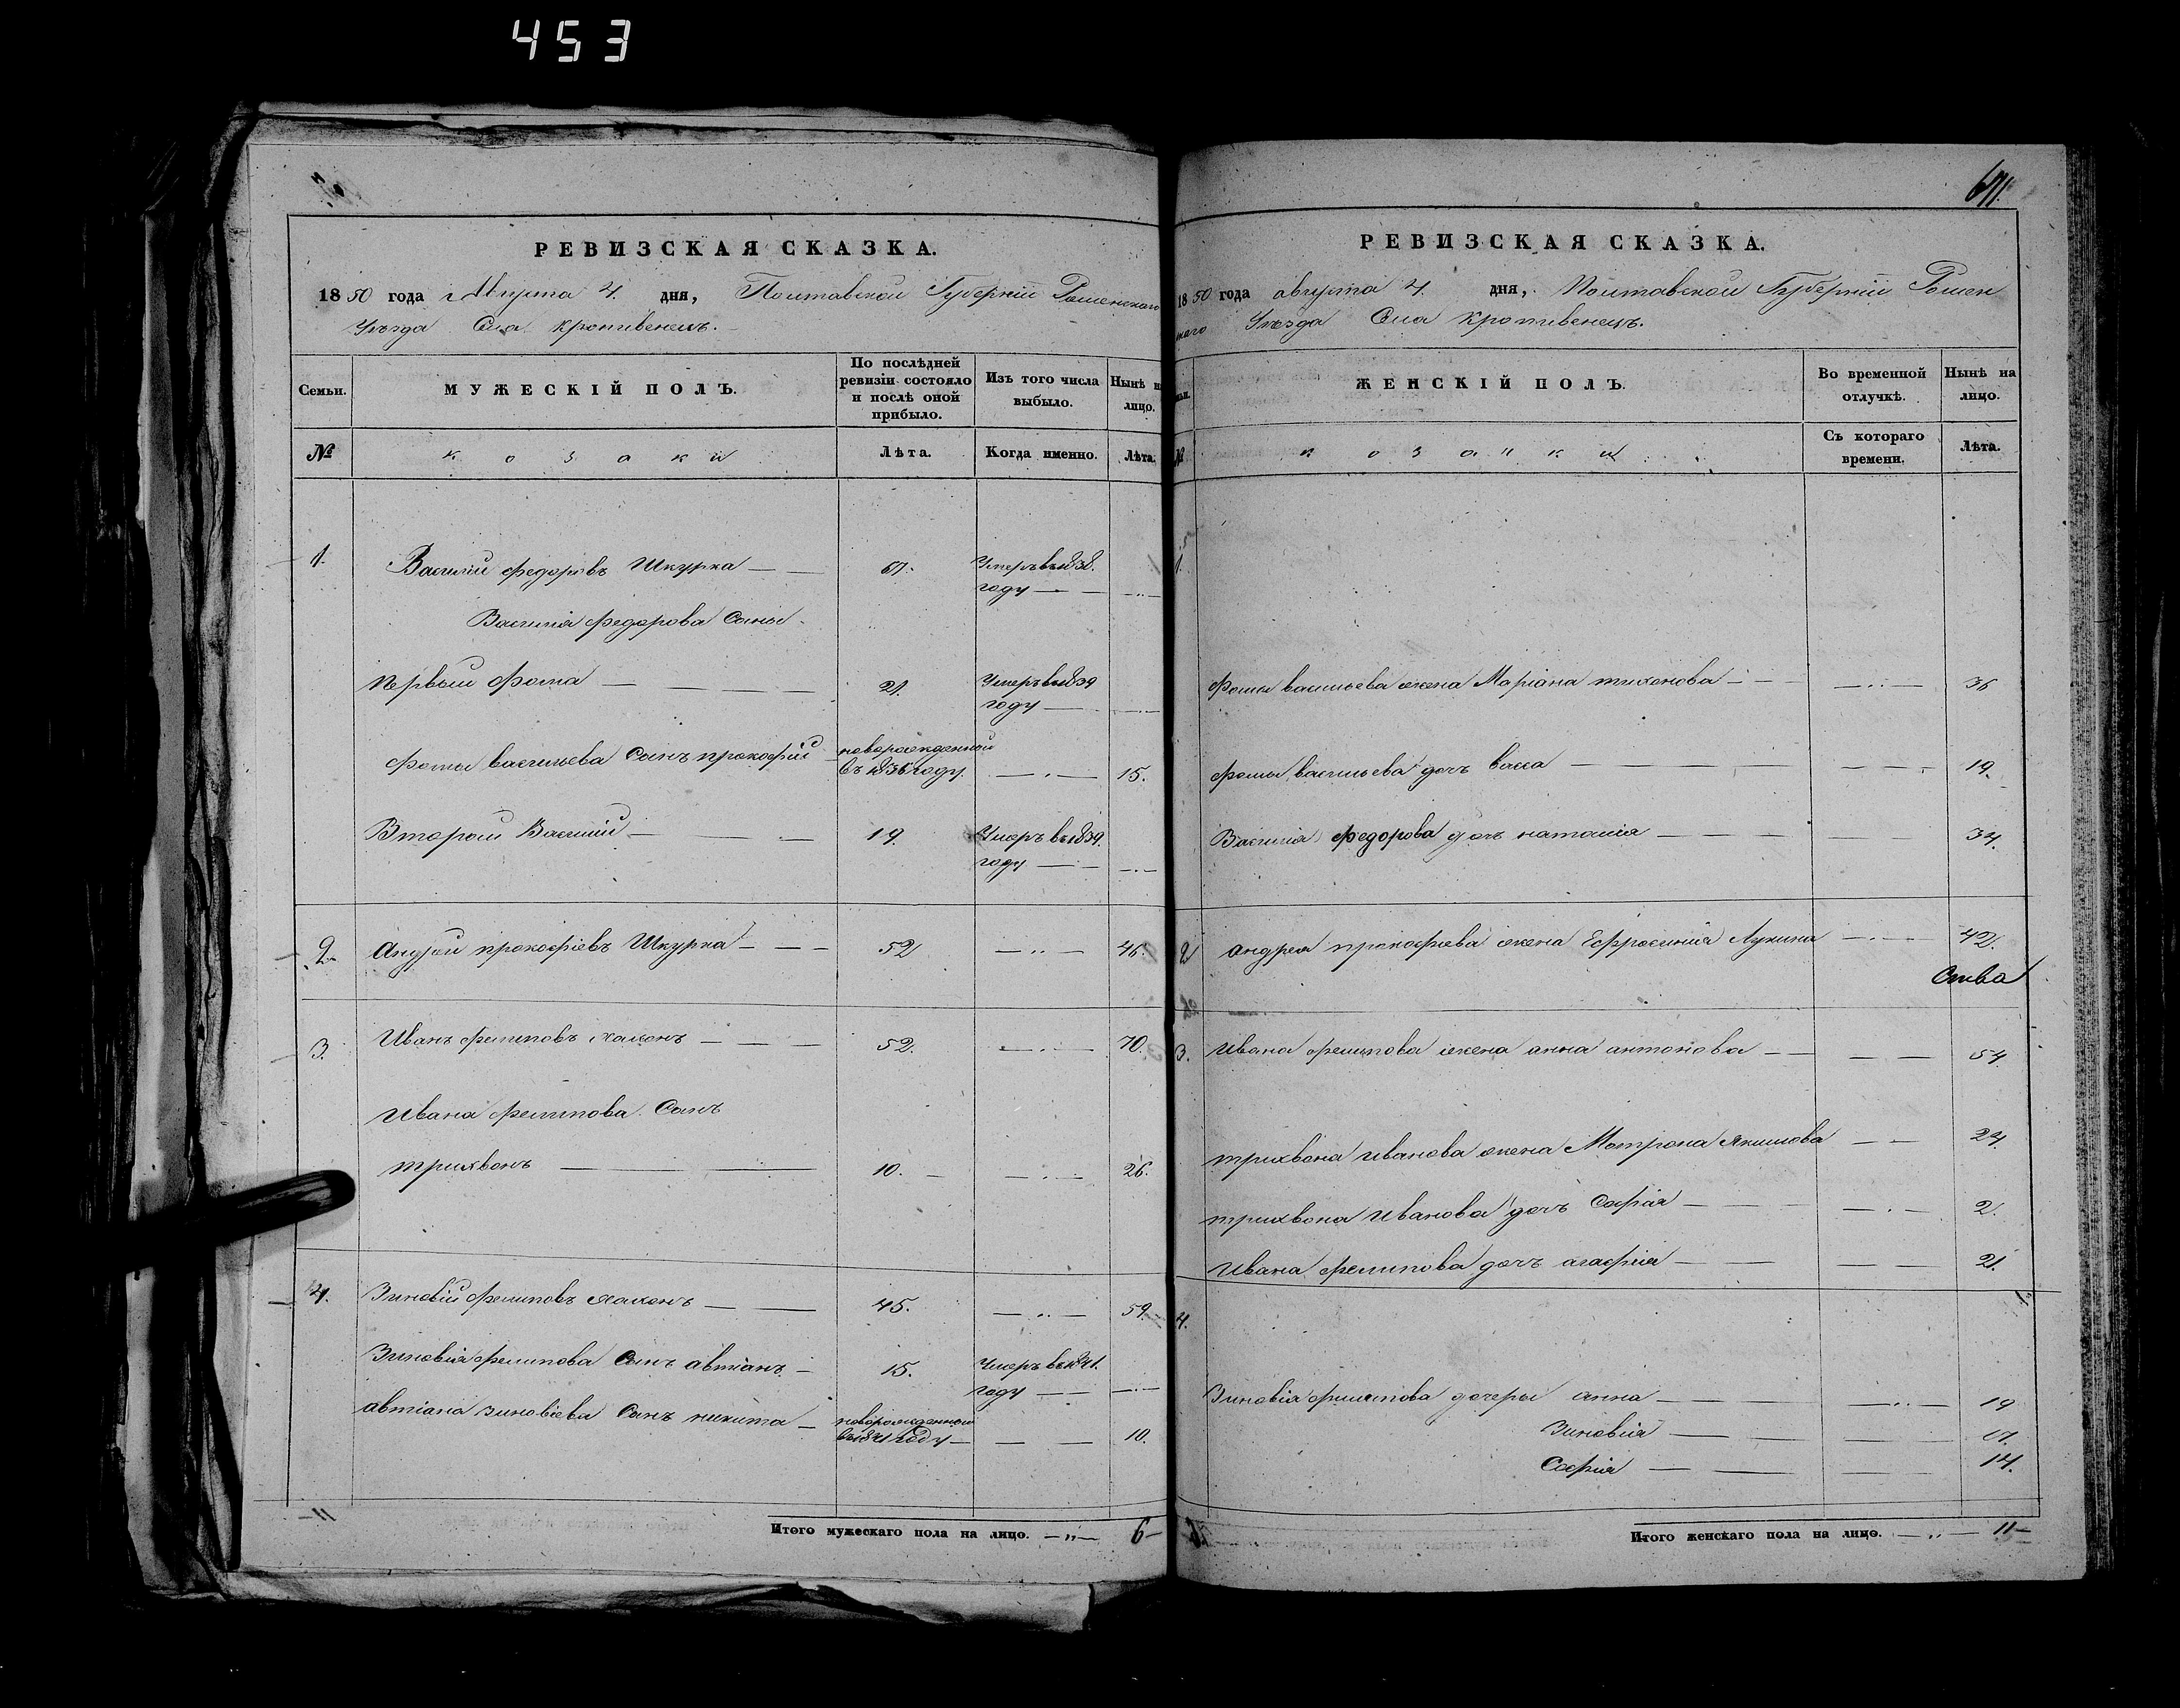 453
РЕВИЗСКАЯ СКАЗКА.
1850 года Августа 4. дня, Полтавской Губерніи Роменскаго
Уѣзда Села Кропивенецъ.
Семьи. МУЖЕСКІЙ ПОЛЪ. По послѣдней ревизіи состояло и послѣ оной прибыло. Изъ того числа выбыло. Нынѣ на лицо.
№ козаки Лѣта. Когда именно. Лѣта.
1. Василій федоровъ Шкурка 67. Умеръ въ 1838.
году
Василія федорова Сыны
первый фома 21. Умеръ въ 1839
году
фомы васильева Сынъ прокофій новорожденной
въ 1836 году. 15.
Второй Василій 19. Умеръ въ 1839.
году
2. Андрей прокофіевъ Шкурка 52 46.
3. Иванъ филиповъ 52. 70.
Ивана филипова Сынъ
трихвонъ 10. 26.
4. Зиновій филиповъ 45. 59.
Зиновія филипова Сынъ автіанъ 15. Умеръ въ 1841.
году
автіана зиновіева Сынъ никита новорожденной
въ 1841 году 10.
Итого мужескаго пола на лицо. 6
671.
РЕВИЗСКАЯ СКАЗКА.
1850 года августа 4. дня, Полтавской Губерніи Ромен
скаго Уѣзда Села Кропивенецъ.
ЖЕНСКІЙ ПОЛЪ. Во временной отлучкѣ. Нынѣ на лицо.
№ козачки Съ котораго времени. Лѣта.
1.
фомы васильева жена Маріана тихонова 36
фомы васильева дочь васса 19.
Василія федорова дочь наталія 34.
2 андрея прокофіева жена Ефросинія Лукина 42.
3. Ивана филипова жена анна антонова 54
трихвона иванова жена Мотрона Якимова 24
трихвона иванова дочь Софія 2.
Ивана филипова дочь агафія 21.
4.
Зиновія филипова дочеры анна 19
Зиновія 17.
Софія 14.
Итого женскаго пола на лицо. 11